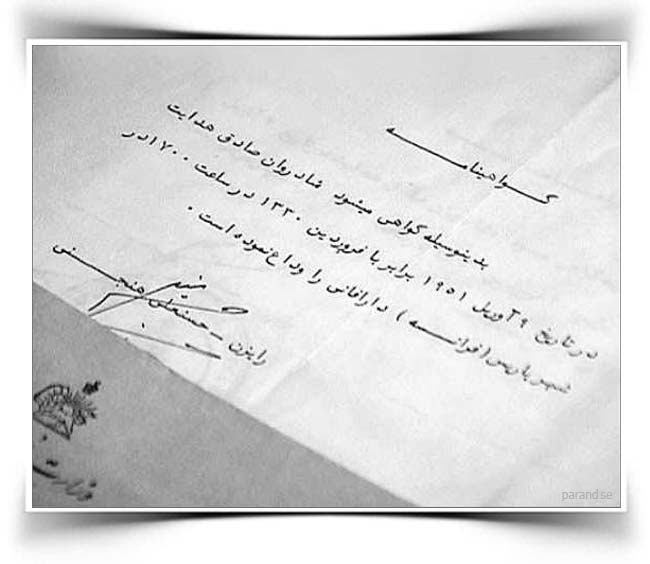 گواهینامه
بدینوسیله گواهی میشود شادروان صادق هدایت
در تاریخ ۹ آوریل ۱۹۵۱ برابر با فروردین ۱۳۳۰ در ساعت ۱۷۰۰ در
شهر پاریس (فرانسه) دارفانی را وداع نموده است .
رایزن - حسنعلی
وزارت
parand.se